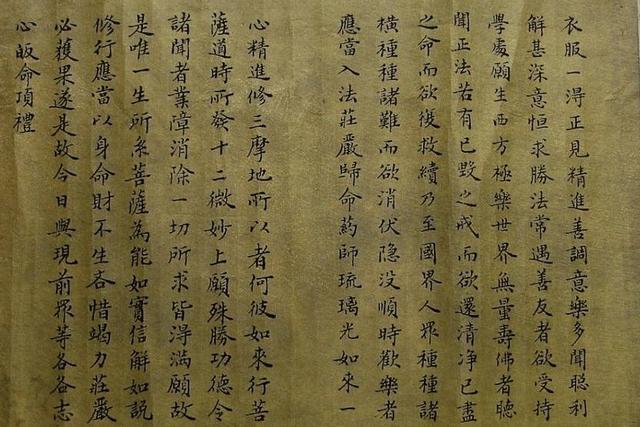 衣服一得正見精進善調意樂多聞聡利
解甚深意恒求勝法常遇善友者欲受持
學處願生西方極樂世界無量壽佛者聴
聞正法若有已毀之戒而欲還清净已盡
之命而欲復救續乃至國界人界種種諸
橫種種諸難而欲消伏隐没順時歡樂者
應當入法莊嚴歸命藥師琉璃光如來一
心精進修三摩地所以者何彼如來行菩
薩道時所發十二微妙上願殊勝功德令
諸聞者業障消除一切所求皆得滿願故
是唯一生所系菩薩為能如實信解如説
修行應當以身命財不生吝惜竭力莊嚴
必獲果遂是故今日與現前眾等各各志
心皈命頂禮